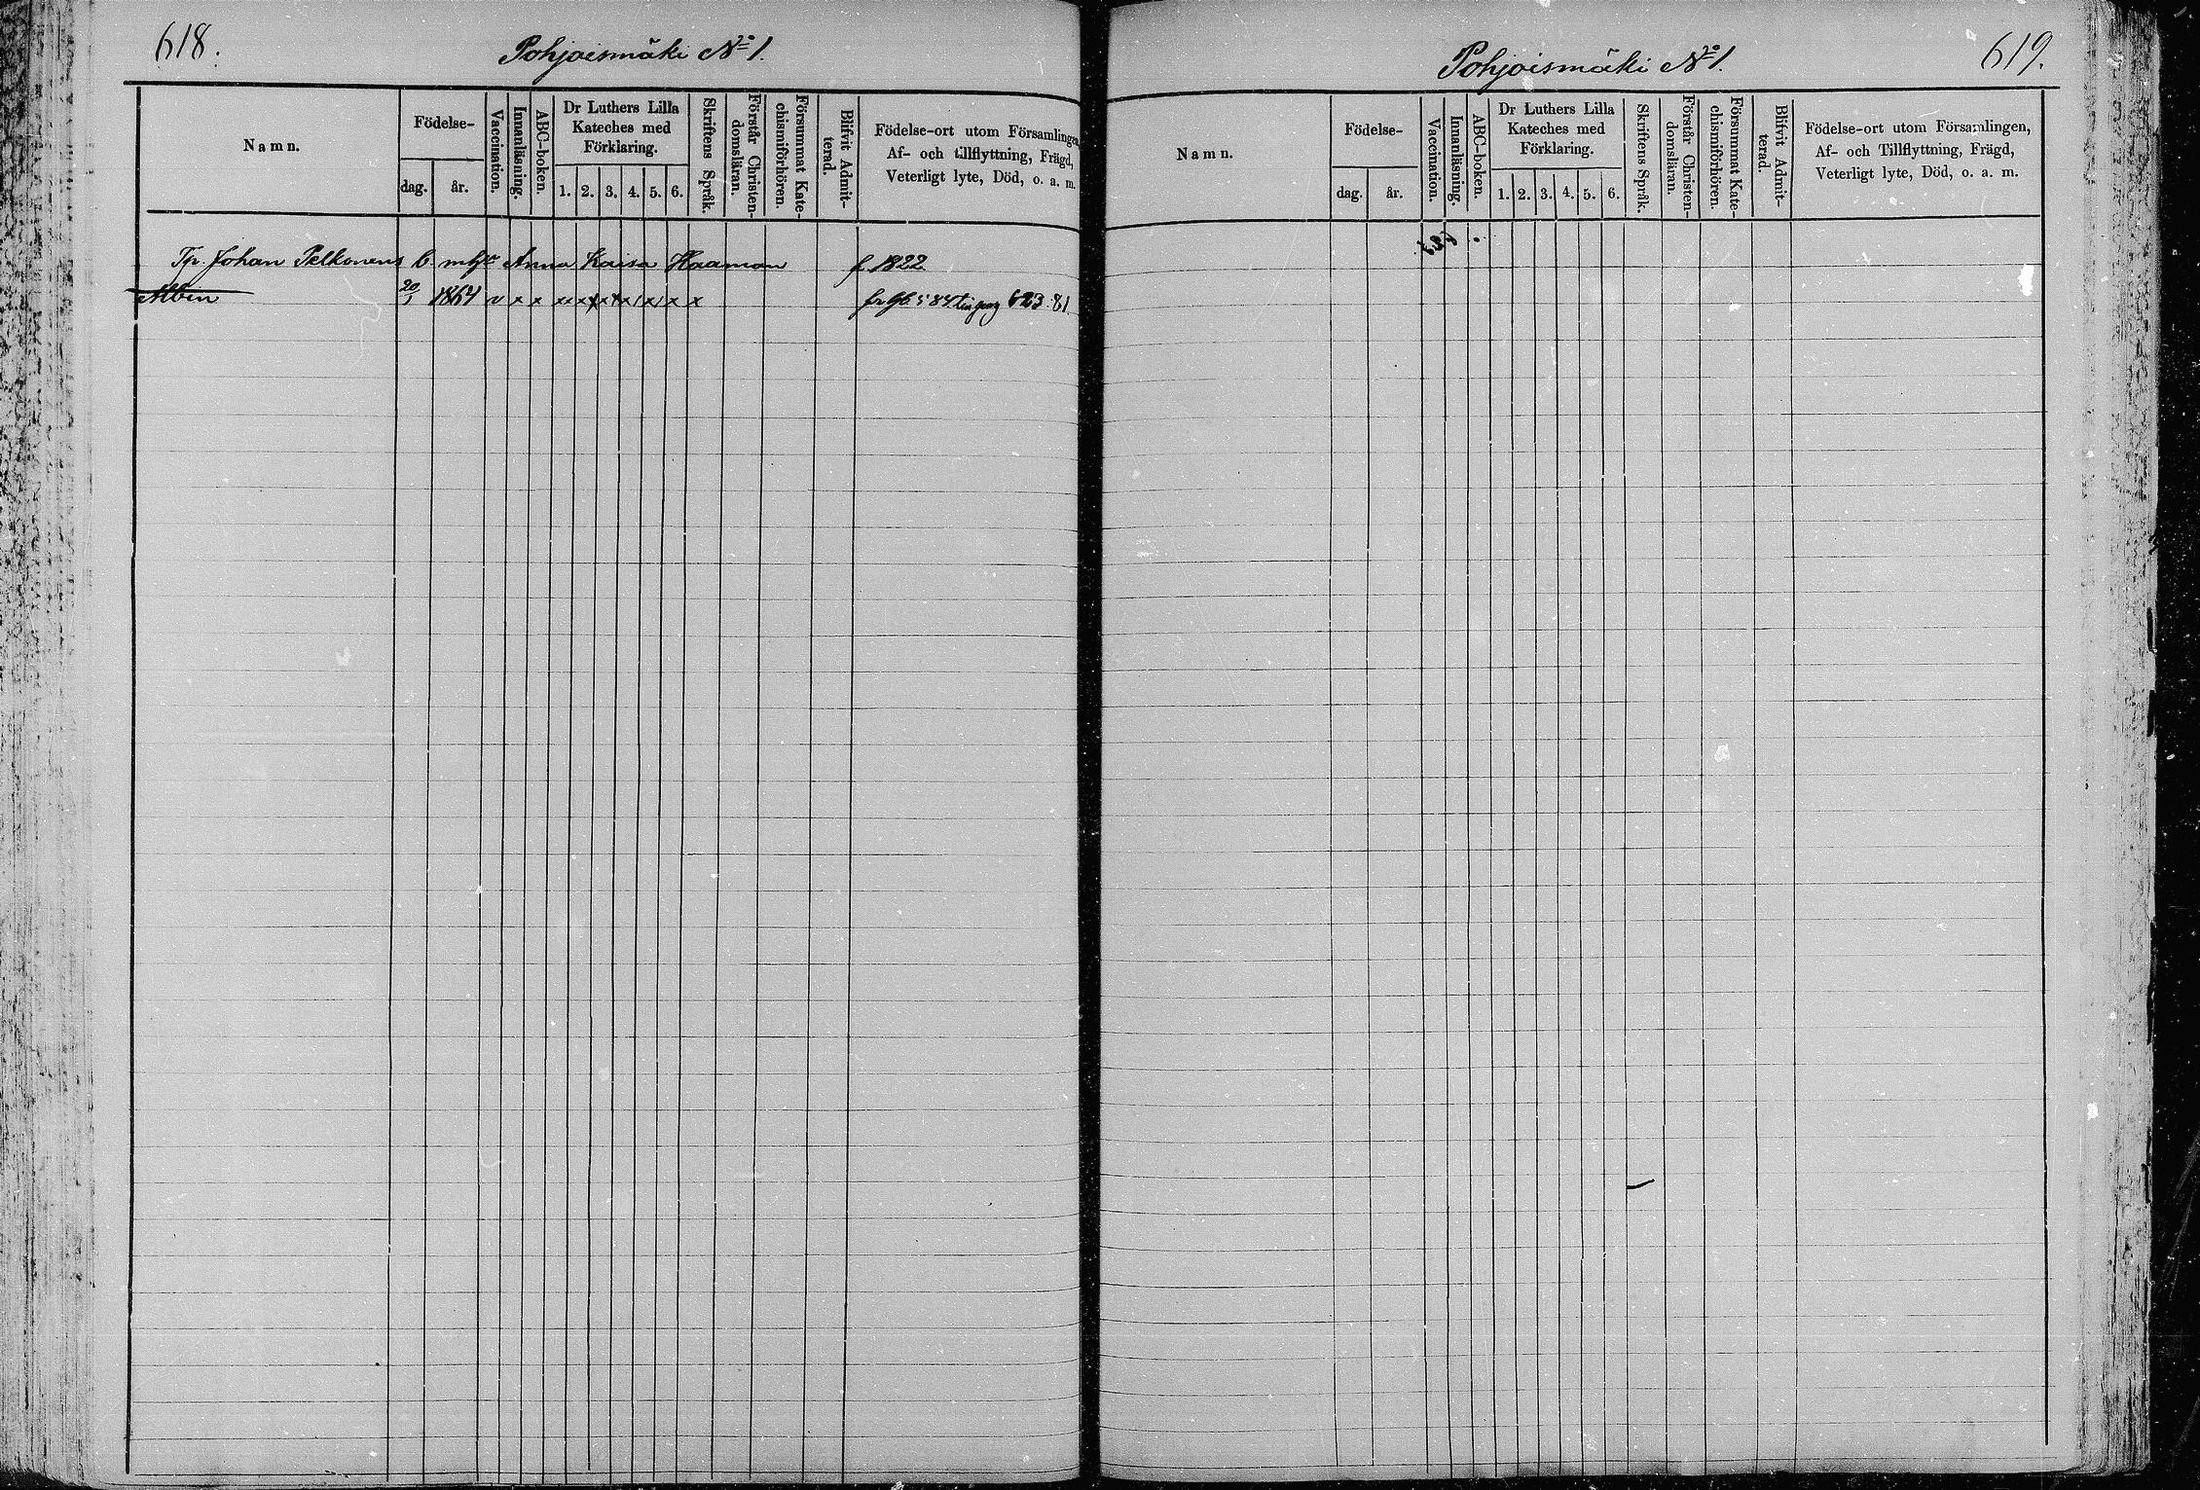 618.
Pohjoismäki No 1.
Namn.
Födelse-
dag.
år.
Vaccination.
Innanläsning.
ABC-boken.
Dr Luthers Lilla
Kateches med
Förklaring.
1. 2. 3. 4. 5. 6.
Skriftens Språk.
Förstår Christen-
domsläran.
Försummat Kate-
chismiförhören.
Blifvit Admit-
terad.
Födelse-ort utom Församlingen,
Af- och tillflyttning, Frägd,
Veterligt lyte, Död, o. a. m.
Johan Pelkonens Anna Kaisa f. 1822
Albin 20/1 1864 v x x x x x x x x x x 623. 81.
Pohjoismäki No 1.
619.
Namn.
Födelse-
dag.
år.
Vaccination.
Innanläsning.
ABC-boken.
Dr Luthers Lilla
Kateches med
Förklaring.
1. 2. 3. 4. 5. 6.
Skriftens Språk.
Förstår Christen-
domsläran.
Försummat Kate-
chismiförhören.
Blifvit Admit-
terad.
Födelse-ort utom Församlingen,
Af- och Tillflyttning, Frägd,
Veterligt lyte, Död, o. a. m.